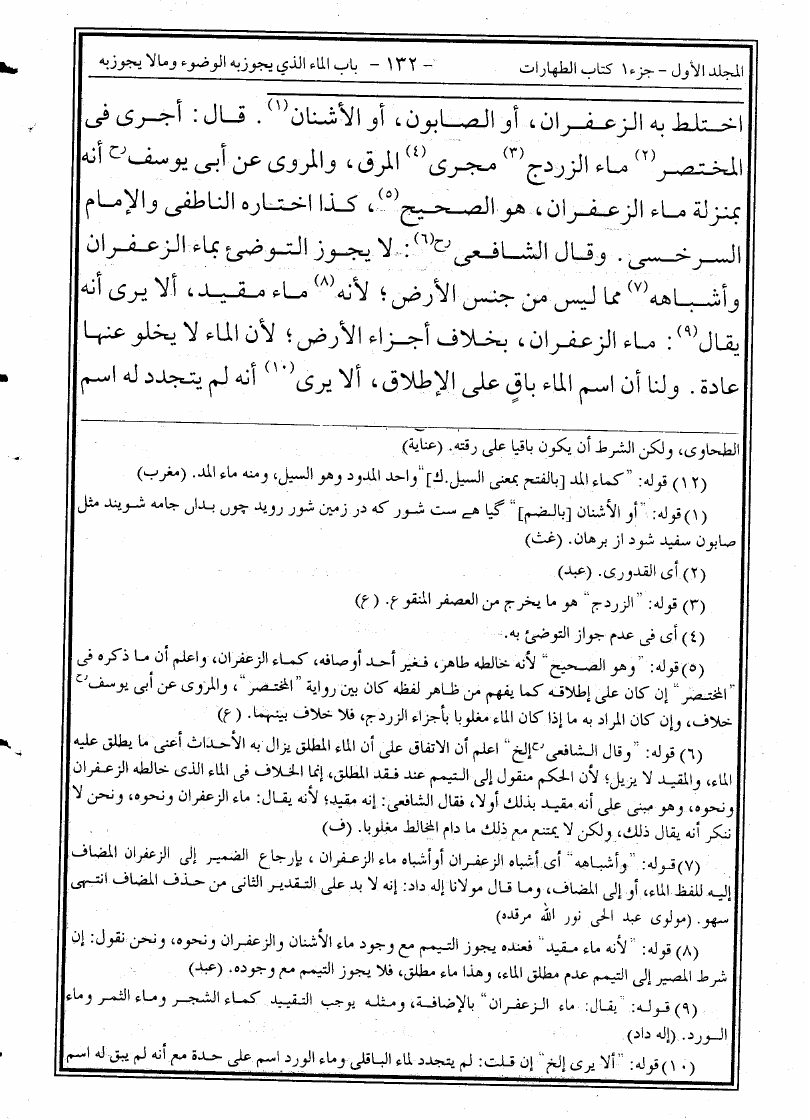 المجلد الأول - جزء١ كتاب الطهارات - ١٣٢ - باب الماء الذي يجوزبه الوضوء ومالا يجوزبه
اختلط به الزعفران، أو الصابون، أو الأشنان(١). قال: أجرى فى
المختصر(٢) ماء الزردج(٣) مجرى(٤) المرق، والمروى عن أبى يوسف رح أنه
بمنزلة ماء الزعفران، هو الصحيح(٥)، كذا اختاره الناطفى والإمام
السرخسى. وقال الشافعى رح(٦): لا يجوز التوضئ بماء الزعفران
وأشباهه(٧) مما ليس من جنس الأرض؛ لأنه(٨) ماء مقيد، ألا يرى أنه
يقال(٩): ماء الزعفران، بخلاف أجزاء الأرض؛ لأن الماء لا يخلو عنها
عادة. ولنا أن اسم الماء باقٍ على الإطلاق، ألا يرى(١٠) أنه لم يتجدد له اسم
الطحاوى، ولكن الشرط أن يكون باقيا على رقته. (عناية)
(١٢) قوله: "كماء المد [بالفتح بمعنى السيل.ك]" واحد المدود وهو السيل، ومنه ماء المد. (مغرب)
(١) قوله: "أو الأشنان [بالضم]" گيا هے ست شور كه در زمين شور رويد چوں بداں جامه شويند مثل
صابون سفيد شود از برهان. (غث)
(٢) أى القدورى. (عبد)
(٣) قوله: "الزردج" هو ما يخرج من العصفر المنقوع. (ع)
(٤) أى فى عدم جواز التوضئ به.
(٥) قوله: "وهو الصحيح" لأنه خالطه طاهر، فغير أحد أوصافه، كماء الزعفران، واعلم أن ما ذكره فى
"المختصر" إن كان على إطلاقه كما يفهم من ظاهر لفظه كان بين رواية "المختصر"، والمروى عن أبى يوسف رح
خلاف، وإن كان المراد به ما إذا كان الماء مغلوبا بأجزاء الزردج، فلا خلاف بينهما. (ع)
(٦) قوله: "وقال الشافعى رح إلخ" اعلم أن الاتفاق على أن الماء المطلق يزال به الأحداث أعنى ما يطلق عليه
الماء، والمقيد لا يزيل؛ لأن الحكم منقول إلى التيمم عند فقد المطلق، إنما الخلاف فى الماء الذى خالطه الزعفران
ونحوه، وهو مبنى على أنه مقيد بذلك أولا، فقال الشافعى: إنه مقيد؛ لأنه يقال: ماء الزعفران ونحوه، ونحن لا
ننكر أنه يقال ذلك، ولكن لا يمتنع مع ذلك ما دام المخالط مغلوبا. (ف)
(٧) قوله: "وأشباهه" أى أشباه الزعفران أوأشباه ماء الزعفران، بإرجاع الضمير إلى الزعفران المضاف
إليه للفظ الماء، أو إلى المضاف، وما قال مولانا إله داد: إنه لا بد على التقدير الثانى من حذف المضاف انتهى
سهو. (مولوى عبد الحى نور الله مرقده)
(٨) قوله: "لأنه ماء مقيد" فعنده يجوز التيمم مع وجود ماء الأشنان والزعفران ونحوه، ونحن نقول: إن
شرط المصير إلى التيمم عدم مطلق الماء، وهذا ماء مطلق، فلا يجوز التيمم مع وجوده. (عبد)
(٩) قوله: "يقال: ماء الزعفران" بالإضافة، ومثله يوجب التقييد كماء الشجر وماء الثمر وماء
الورد. (إله داد)
(١٠) قوله: "ألا يرى إلخ" إن قلت: لم يتجدد لماء الباقلى وماء الورد اسم على حدة مع أنه لم يبق له اسم